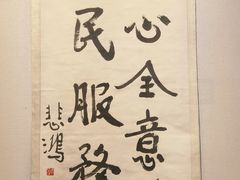 心全意
民服務
悲鴻